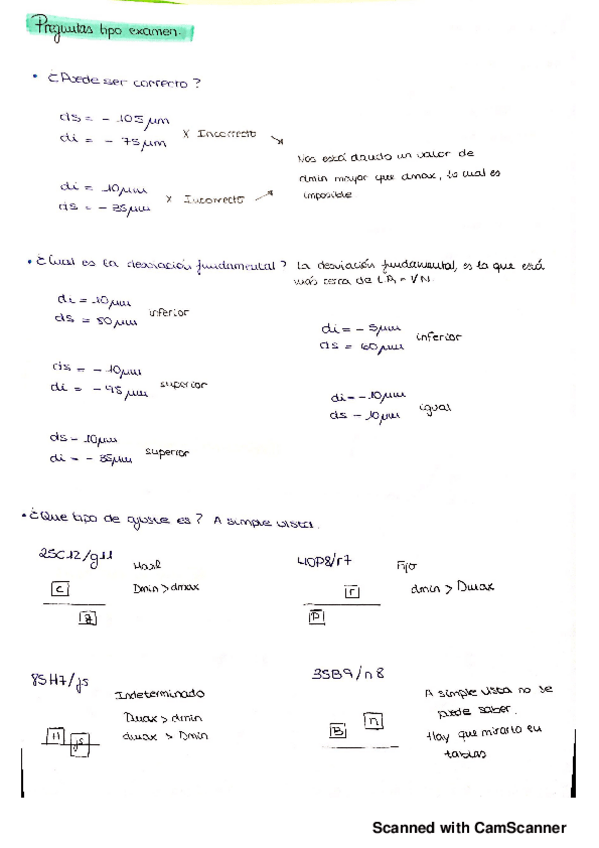 Preguntas tipo examen.
• ¿Puede ser correcto?
ds = - 105 μm
di = - 75 μm
x Incorrecto
di = 10 μm
ds = - 25 μm
x Incorrecto
Nos está dando un valor de
dmin mayor que dmax, lo cual es
imposible
• ¿Cual es la desviación fundamental? La desviación fundamental, es la que está
más cerca de LA = VN.
di = 10 μm
ds = 50 μm
inferior
di = - 5 μm
ds = 60 μm
inferior
ds = - 10 μm
di = - 45 μm
superior
di = - 10 μm
ds - 10 μm
igual
ds - 10 μm
di = - 35 μm
superior
• ¿Que tipo de ajuste es? A simple vista.
25C12/g11
Movil
Dmin > dmax
C
g
40P8/r7
Fijo
dmin > Dmax
r
P
85H7/js
Indeterminado
Dmax > dmin
dmax > Dmin
H
js
35B9/n8
A simple vista no se
puede saber.
Hay que mirarlo en
tablas
B
n
Scanned with CamScanner